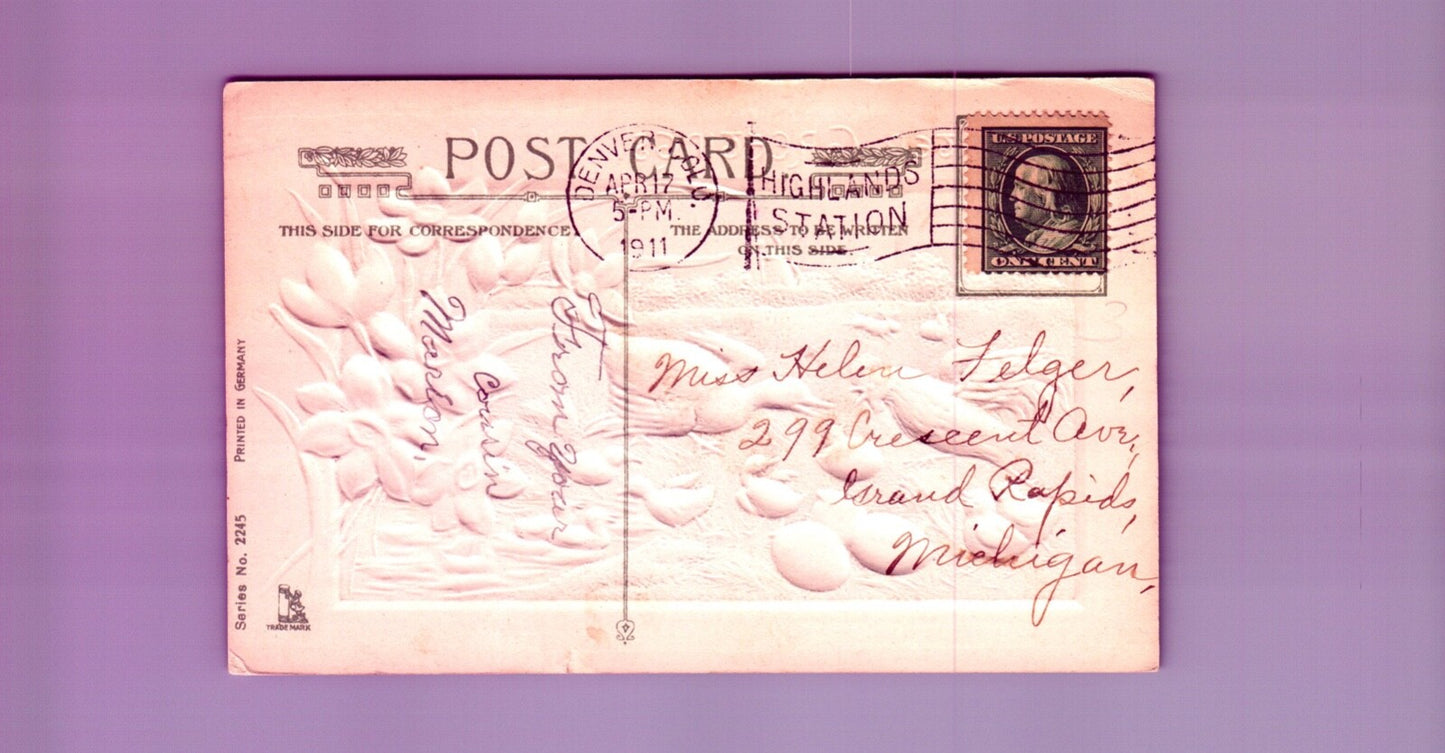 POST CARD
DENVER, COLO
APR 17
5-PM.
1911
HIGHLANDS
STATION
U.S. POSTAGE
ONE CENT
THIS SIDE FOR CORRESPONDENCE
THE ADDRESS TO BE WRITTEN
ON THIS SIDE.
From your
cousin
Marlon,
Miss Helen Felger,
299 Crescent Ave,
Grand Rapids,
Michigan,
Series No. 2245
PRINTED IN GERMANY
TRADE MARK